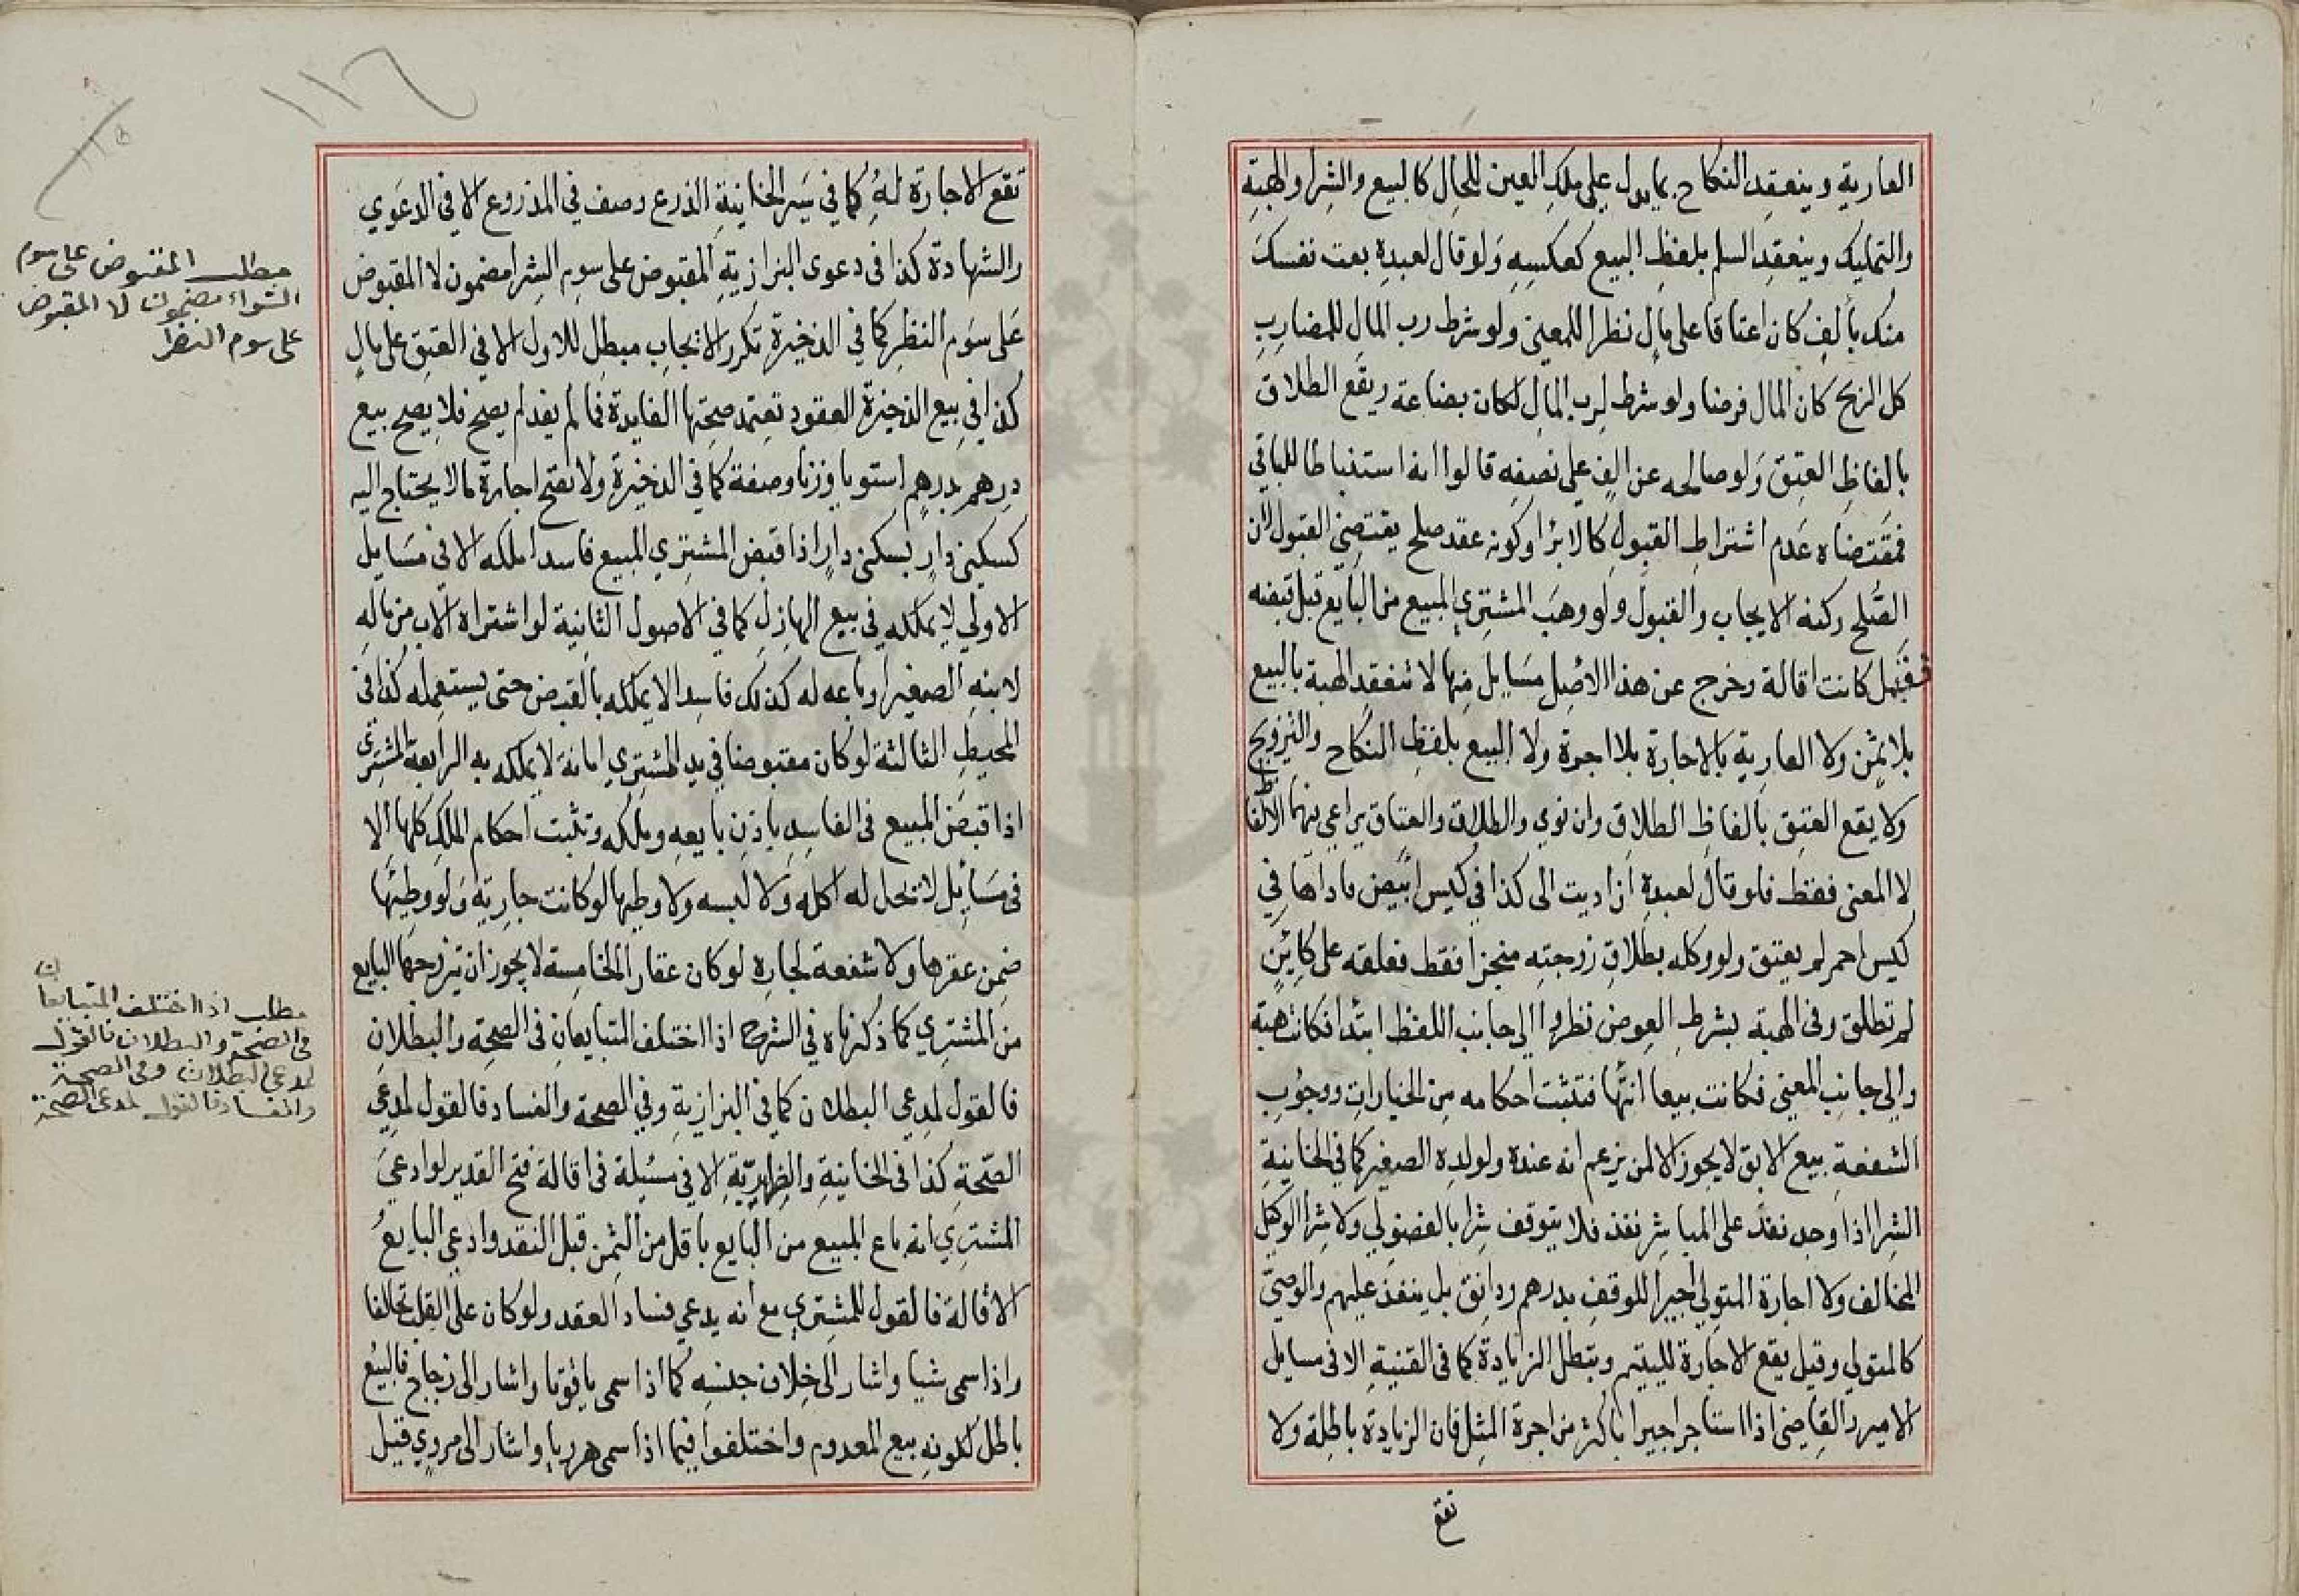 العارية وينعقد النكاح بما يدل على ملك العين للحال كالبيع والشرا والهبة
والتمليك وينعقد السلم بلفظ البيع كعكسه ولو قال لعبده بعت نفسك
منك بألف كان اعتاقا على مال نظرا للمعنى ولو شرط رب المال للمضارب
كل الربح كان المال قرضا ولو شرط لرب المال لكان بضاعة ويقع الطلاق
بالفاظ العتق ولو صالحه عن الف على نصفه قالوا انه استنباطا للباقي
فمقتضاه عدم اشتراط القبول كالابرا وكونه عقد صلح يقتضي القبول لان
الصلح ركنه الايجاب والقبول ولو وهب المشتري المبيع من البايع قبل قبضه
فقبل كانت اقالة وخرج عن هذا الاصل مسايل منها لا تنعقد الهبة بالبيع
بلا ثمن ولا العارية بالاجارة بلا اجرة ولا البيع بلفظ النكاح والتزويج
ولا يقع العتق بالفاظ الطلاق وان نوي والطلاق والعتاق يراعي فيهما الالفاظ
لا المعنى فقط فلو قال لعبده ان اديت الى كذا في كيس ابيض فاداها في
كيس احمر لم يعتق ولو وكله بطلاق زوجته منجزا فقط فعلقه على كاين
لم تطلق وفى الهبة بشرط العوض نظروا الى جانب اللفظ ابتدا فكانت هبة
والي جانب المعني فكانت بيعا انتها فتثبت احكامه من الخيارات ووجوب
الشفعة بيع الابق لا يجوز الا لمن يزعم انه عنده ولولده الصغير كما في الخانية
الشرا اذا وجد نفذ على المباشر نفذ فلا يتوقف شرا بالفضولي ولا شرا الوكيل
المخالف ولا اجارة المتولي اجيرا للوقف بدرهم ودانق بل ينفذ عليهم والوصي
كالمتولي وقيل يقع الاجارة لليتيم وتبطل الزيادة كما فى القنية الا فى مسايل
الامير والقاضى اذا استاجر اجيرا باكثر من اجرة المثل فان الزيادة باطلة ولا
تقع
١١٦
تقع الاجارة له كما في سير الخانية الذرع وصف في المذروع الا في الدعوي
والشهادة كذا فى دعوى البزازية المقبوض على سوم الشرا مضمون لا المقبوض
على سوم النظر كما في الذخيرة تكرر الايجاب مبطل للاول الا في العتق على مال
كذا في بيع الذخيرة العقود تعتمد صحتها الفايدة فما لم يفد لم يصح فلا يصح بيع
درهم بدرهم استويا وزنا وصفة كما في الذخيرة ولا تصح اجارة ما لا يحتاج اليه
كسكنى دار بسكنى دار اذا قبض المشتري المبيع فاسدا ملكه الا فى مسايل
الاولي لا يملكه في بيع الهازل كما في الاصول الثانية لو اشتراه الاب من ماله
لابنه الصغير او باعه له كذلك فاسدا لا يملكه بالقبض حتى يستعمله كذا فى
المحيط الثالثة لو كان مقبوضا في يد المشتري امانة لا يملكه به الرابعة المشتري
اذا قبض المبيع فى الفاسد باذن بايعه وملكه وتثبت احكام الملك كلها الا
فى مسايل لا تحل له اكله ولا لبسه ولا وطيها لو كانت جارية ولو وطيها
ضمن عقرها ولا شفعة لجاره لو كان عقارا الخامسة لا يجوز ان يتزوجها البايع
من المشتري كما ذكرناه في الشرح اذا اختلف المتبايعان فى الصحة والبطلان
فالقول لمدعي البطلان كما في البزازية وفي الصحة والفساد فالقول لمدعي
الصحة كذا فى الخانية والظهرية الا في مسئلة فى اقالة فتح القدير لو ادعي
المشتري انه باع المبيع من البايع باقل من الثمن قبل النقد وادعي البايع
الاقالة فالقول للمشتري مع انه يدعي فساد العقد ولو كان على القلب تحالفا
واذا سمى شيا واشار الى خلاف جنسه كما اذا سمى ياقوتا واشار الى زجاج فالبيع
باطل لكونه بيع المعدوم واختلفوا فيما اذا سمى هرويا واشار الى مروي قيل
مطلب المقبوض على سوم
الشراء مضمون لا المقبوض
على سوم النظر
مطلب اذا اختلف المتبايعان
فى الصحة والبطلان فالقول
لمدعى البطلان وفى الصحة
والفساد فالقول لمدعى الصحة